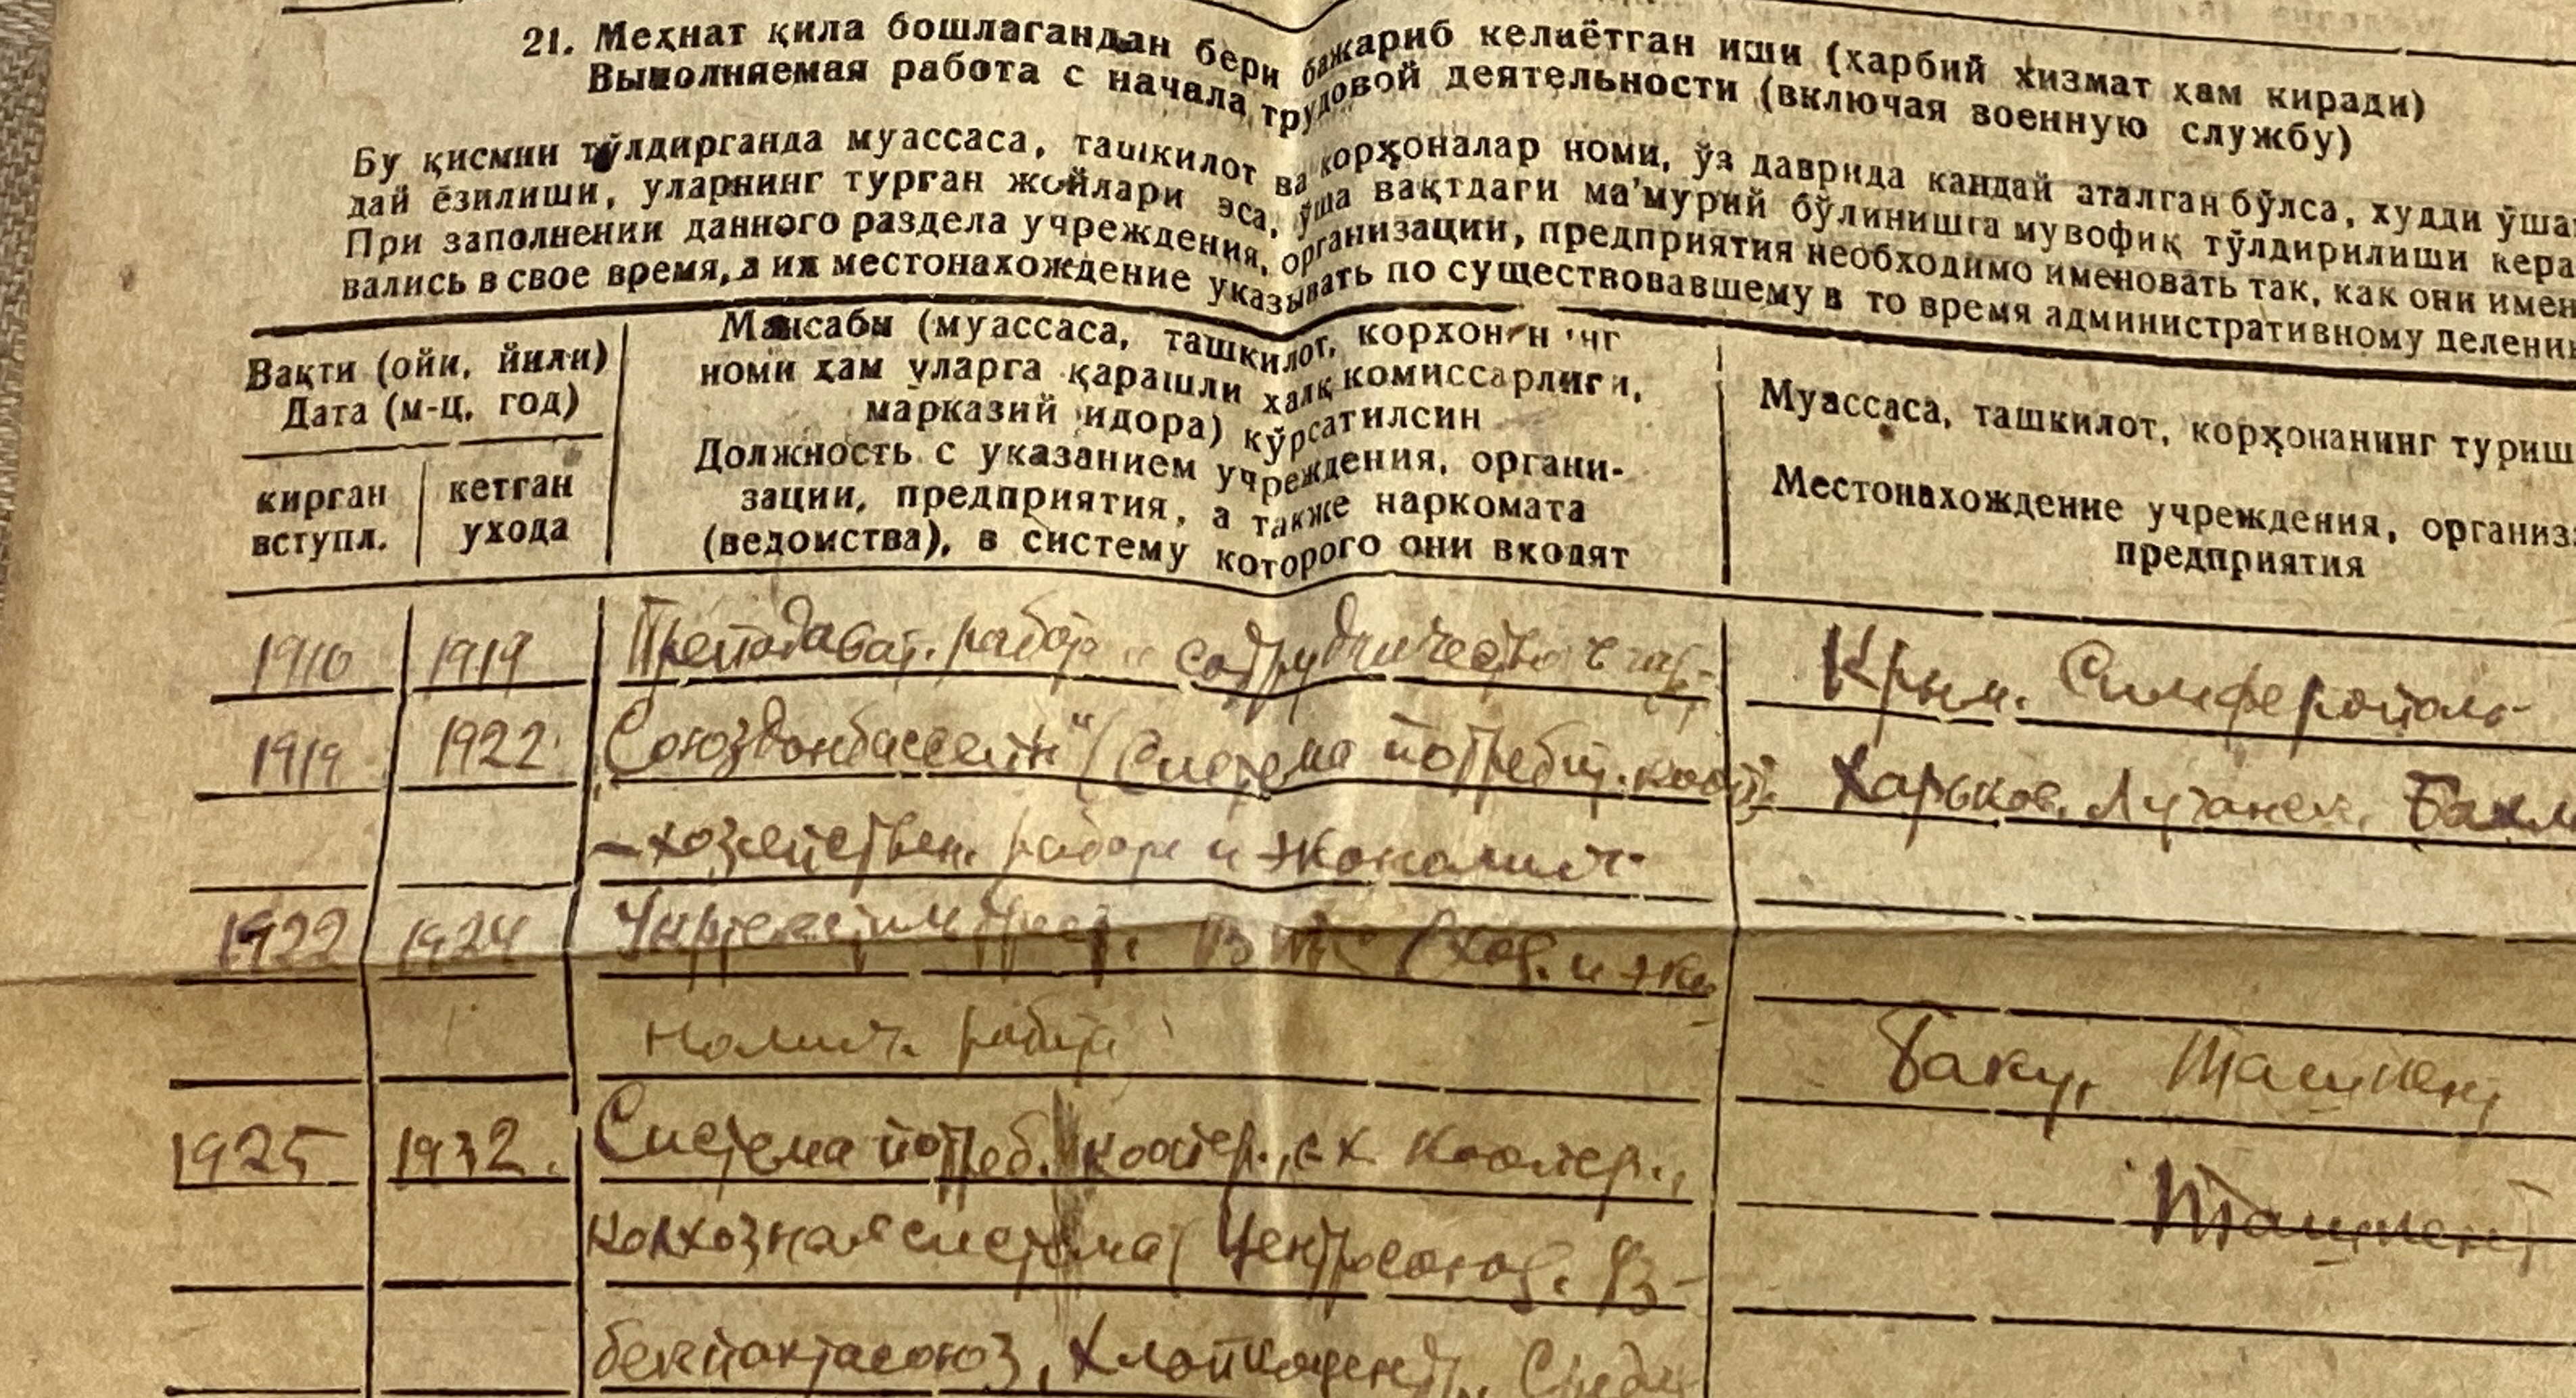 21. Меҳнат қила бошлагандан бери бажариб келаётган иши (ҳарбий хизмат ҳам киради)
Выполняемая работа с начала трудовой деятельности (включая военную службу)
Бу қисмни тўлдирганда муассаса, ташкилот ва корҳоналар номи, ўз даврида кандай аталган бўлса, худди ўша
дай ёзилиши, уларнинг турган жойлари эса, ўша вақтдаги ма'мурий бўлинишга мувофиқ тўлдирилиши кера
При заполнении данного раздела учреждения, организации, предприятия необходимо именовать так, как они имен
вались в свое время, а их местонахождение указывать по существовавшему в то время административному делени
Вақти (ойи, йили)
Дата (м-ц, год)
кирган
вступл.
кетган
ухода
Мансабы (муассаса, ташкилот, корхон
номи ҳам уларга қарашли халқ комиссарлиги,
марказий идора) кўрсатилсин
Должность с указанием учреждения, органи-
зации, предприятия, а также наркомата
(ведомства), в систему которого они входят
Муассаса, ташкилот, корҳонанинг туриш
Местонахождение учреждения, организ
предприятия
1910 1919 Преподават. работ и сотрудничество в газ. Крым. Симферополь
1919 1922 „Союздонбассейн" (Система потребит. кооп. Харьков, Луганск, Бахм
- хозяйствен. работа и экономич.
1922 1924 (хоз. и эко
номич. работа Баку, Ташкент
1925 1932. Система потреб. коопер., с-х. коопер.,
колхозная система (Центросоюз. Уз- Ташкент
бекпахтасоюз, Хлопкоцентр, Средаз